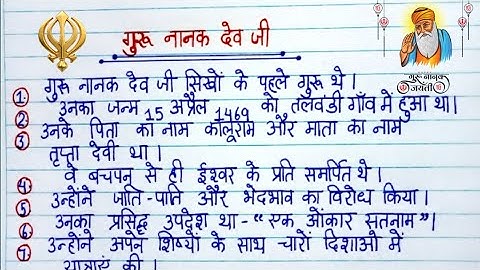 गुरू नानक देव जी
गुरू नानक
जयंती
1. गुरू नानक देव जी सिखों के पहले गुरू थे।
2. उनका जन्म 15 अप्रैल 1469 को तलवंडी गाँव में हुआ था।
3. उनके पिता का नाम कालूराम और माता का नाम
तृप्ता देवी था।
4. वे बचपन से ही ईश्वर के प्रति समर्पित थे।
5. उन्होंने जाति-पाति और भेदभाव का विरोध किया।
6. उनका प्रसिद्ध उपदेश था - “एक ओंकार सतनाम”।
7. उन्होंने अपने शिष्यों के साथ चारों दिशाओ में
यात्राएं की।